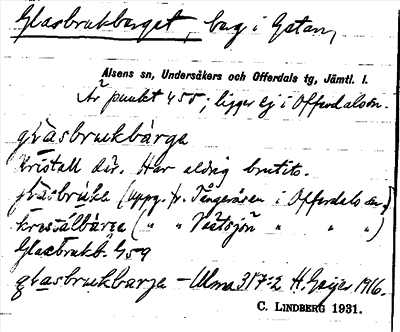 Glasbruksberget, berg i Gatan,
Alsens sn, Undersåkers och Offerdals tg, Jämtl. l.
Är punkt 455; ligger ej i Offerdalssn.
glasbrukbärga
Kristall där. Har aldrig brutits.
glasbruka (uppg. fr. Tångeråsen i Offerdals sn)
kristålbärga ( " " Västsjön " " " )
Glasbrukb. 459
glasbrukbärga - Ulma 317:2 H. Geijer 1916.
C. LINDBERG 1931.